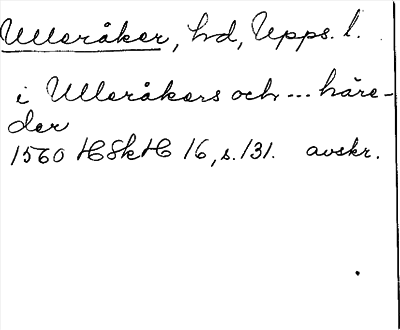 Ulleråker, hd, Upps. l.
i Ulleråkers och ... häre-
der
1560 HSkH 16, s. 131. avskr.